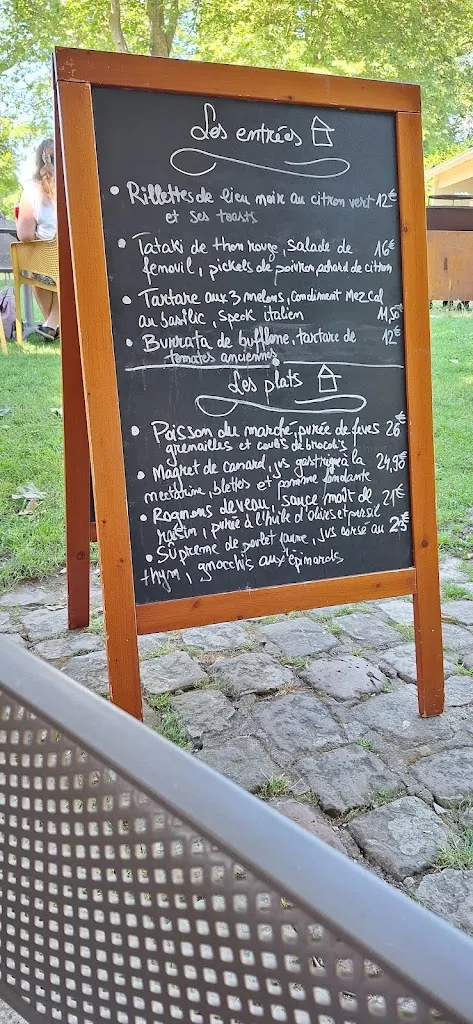 Les entrées
• Rillettes de lieu noir au citron vert 12€
et ses toasts
• Tataki de thon rouge, salade de 16€
fenouil, pickels de poivron, achard de citron
• Tartare aux 3 melons, condiment Mezcal
au basilic, speck italien 11,50€
• Burrata de bufflone, tartare de 12€
tomates anciennes
Les plats
• Poisson du marché, purée de fèves 26€
grenailles et coulis de brocolis
• Magret de canard, jus gastrique à la 24,90€
nectarine, blettes et pomme fondante
• Rognons de veau, sauce moût de 21€
raisin, purée à l'huile d'olives et persil
• Suprême de poulet jaune, jus corsé au 25€
thym, gnocchis aux épinards